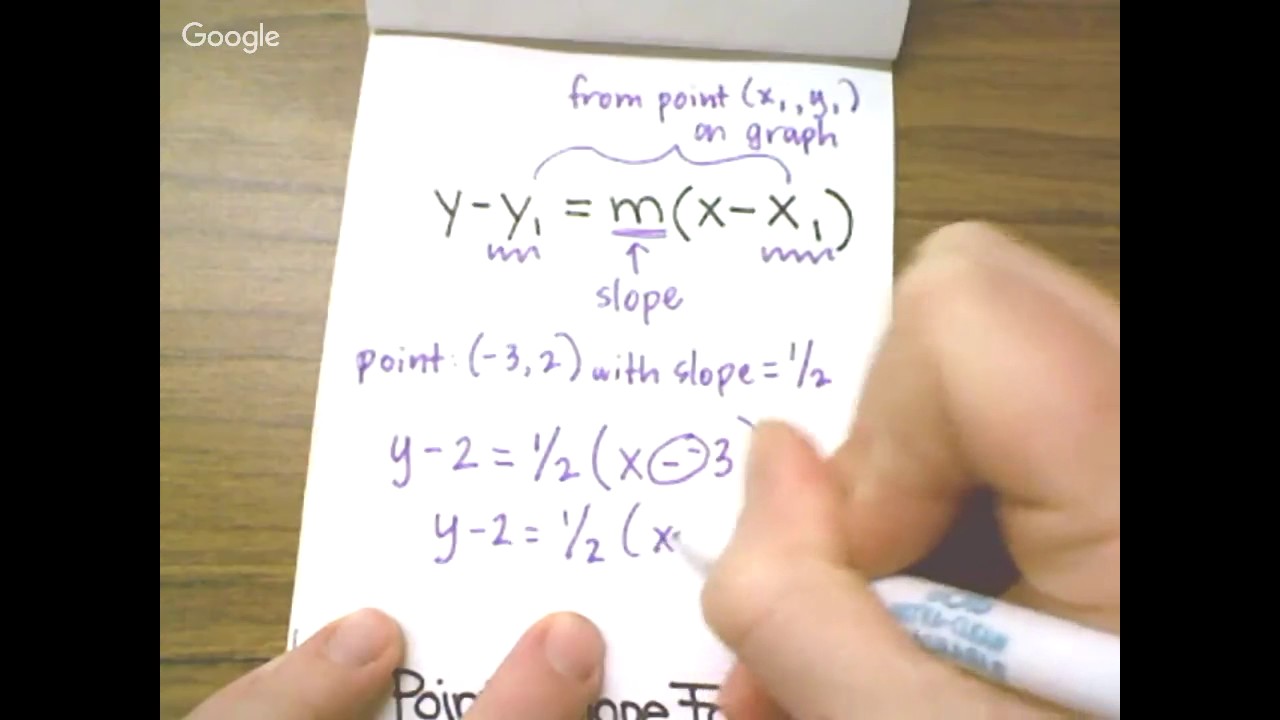 Google
from point (x₁, y₁)
on graph
y-y₁ = m(x-x₁)
↑
slope
point: (-3, 2) with slope = 1/2
y-2 = 1/2 (x--3)
y-2 = 1/2 (x